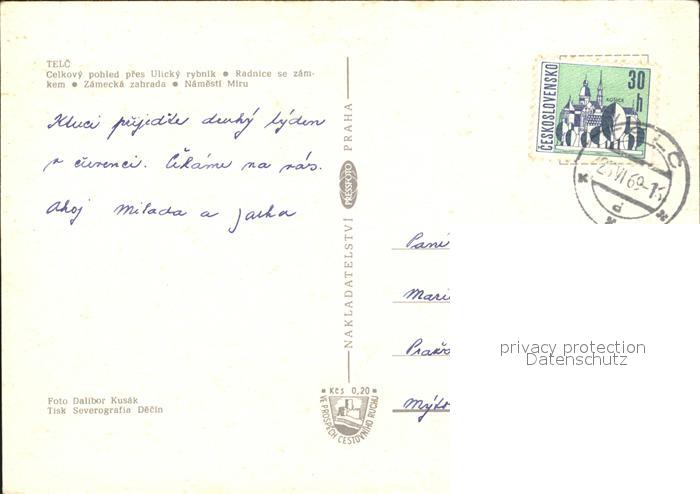 TELČ
Celkový pohled přes Ulický rybník ● Radnice se zám-
kem ● Zámecká zahrada ● Náměstí Míru
Kluci přijeďte druhý týden
v červenci. Čekáme na vás.
Ahoj Milada a Jarka
NAKLADATELSTVÍ PRESSFOTO PRAHA
ČESKOSLOVENSKO
30 h
KOŠICE
LČ
25.VI.69-15
d
Paní
Mari
Mýto
privacy protection
Datenschutz
Foto Dalibor Kusák
Tisk Severografia Děčín
Kčs 0,20
VE PROSPĚCH CESTOVNÍHO RUCHU